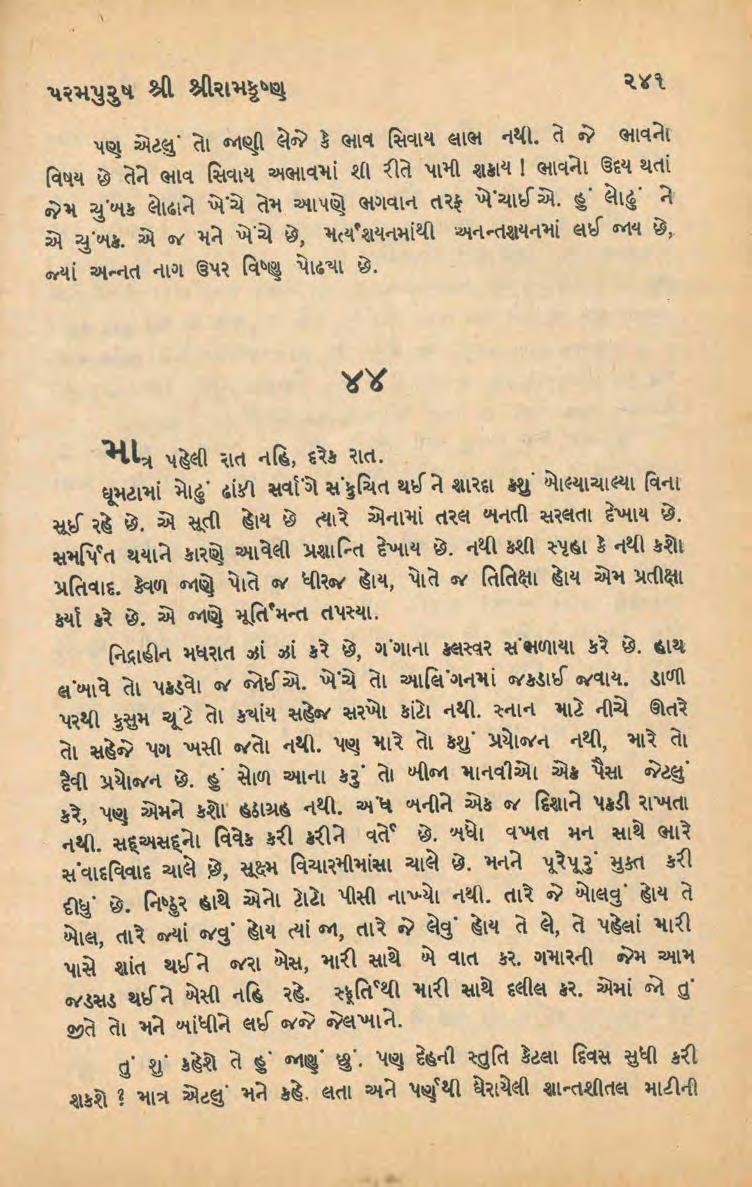 પરમપુરુષ શ્રી શ્રીરામકૃષ્ણ ૨૪૧
પણ એટલું તો જાણી લેજે કે ભાવ સિવાય લાભ નથી. તે જે ભાવનો
વિષય છે તેને ભાવ સિવાય અભાવમાં શી રીતે પામી શકાય ! ભાવનો ઉદય થતાં
જેમ ચુંબક લોઢાને ખેંચે તેમ આપણે ભગવાન તરફ ખેંચાઈએ. હું લોઢું ને
એ ચુંબક. એ જ મને ખેંચે છે, મર્ત્યશયનમાંથી અનન્તશયનમાં લઈ જાય છે,
જ્યાં અન્નત નાગ ઉપર વિષ્ણુ પોઢયા છે.
૪૪
માત્ર પહેલી રાત નહિ, દરેક રાત.
ઘૂમટામાં મોઢું ઢાંકી સર્વાંગે સંકુચિત થઈને શારદા કશું બોલ્યાચાલ્યા વિના
સૂઈ રહે છે. એ સૂતી હોય છે ત્યારે એનામાં તરલ બનતી સરલતા દેખાય છે.
સમર્પિત થયાને કારણે આવેલી પ્રશાન્તિ દેખાય છે. નથી કશી સ્પૃહા કે નથી કશો
પ્રતિવાદ. કેવળ જાણે પોતે જ ધીરજ હોય, પોતે જ તિતિક્ષા હોય એમ પ્રતીક્ષા
કર્યા કરે છે. એ જાણે મૂર્તિમન્ત તપસ્યા.
નિદ્રાહીન મધરાત ઝાં ઝાં કરે છે, ગંગાના કલસ્વર સંભળાયા કરે છે. હાથ
લંબાવે તો પકડવો જ જોઈએ. ખેંચે તો આલિંગનમાં જકડાઈ જવાય. ડાળી
પરથી કુસુમ ચૂંટે તો કયાંય સહેજ સરખો કાંટો નથી. સ્નાન માટે નીચે ઊતરે
તો સહેજે પગ ખસી જતો નથી. પણ મારે તો કશું પ્રયોજન નથી, મારે તો
દૈવી પ્રયોજન છે. હું સોળ આના કરું તો બીજા માનવીઓ એક પૈસા જેટલું
કરે, પણ એમને કશો હઠાગ્રહ નથી. અંધ બનીને એક જ દિશાને પકડી રાખતા
નથી. સદ્અસદ્નો વિવેક કરી કરીને વર્તે છે. બધો વખત મન સાથે ભારે
સંવાદવિવાદ ચાલે છે, સૂક્ષ્મ વિચારમીમાંસા ચાલે છે. મનને પૂરેપૂરું મુક્ત કરી
દીધું છે. નિષ્ઠુર હાથે એનો ટોટો પીસી નાખ્યો નથી. તારે જે બોલવું હોય તે
બોલ, તારે જ્યાં જવું હોય ત્યાં જા, તારે જે લેવું હોય તે લે, તે પહેલાં મારી
પાસે શાંત થઈને જરા બેસ, મારી સાથે બે વાત કર. ગમારની જેમ આમ
જડસડ થઈને બેસી નહિ રહે. સ્ફૂર્તિથી મારી સાથે દલીલ કર. એમાં જો તું
જીતે તો મને બાંધીને લઈ જજે જેલખાને.
તું શું કહેશે તે હું જાણું છું. પણ દેહની સ્તુતિ કેટલા દિવસ સુધી કરી
શકશે ? માત્ર એટલું મને કહે. લતા અને પર્ણથી ઘેરાયેલી શાન્તશીતલ માટીની